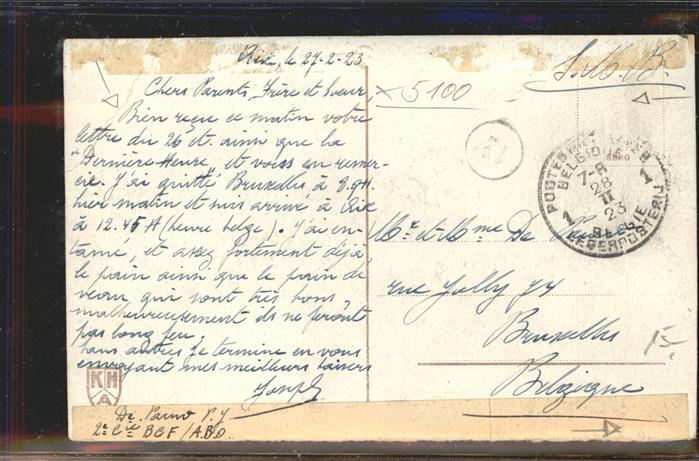 Aix, le 27-2-23
Chers Parents, Frère et Soeur,
Bien reçu ce matin votre
lettre du 26 et. ainsi que la
"Dernière Heure" et vous en remer-
cie. J'ai quitté Bruxelles à 8.9H
hier matin et suis arrivé à Aix
à 12.45 H (heure belge). J'ai en-
tamé, et assez fortement déjà,
le pain ainsi que le pain de
veau, qui sont très bons,
malheureusement ils ne feront
pas long feu.
Sans autres je termine en vous
envoyant mes meilleurs baisers
Joseph
De P.J
2e Cie BCF/A.B.O.
KH
A
x 5100
S.M.B.
POSTES
BELGIQUE
7-8
28
II
23
1 1
BELGIE
LEGERPOSTERIJ
Mr et Mme De
rue Jolly 74
Bruxelles
Belgique
15,-